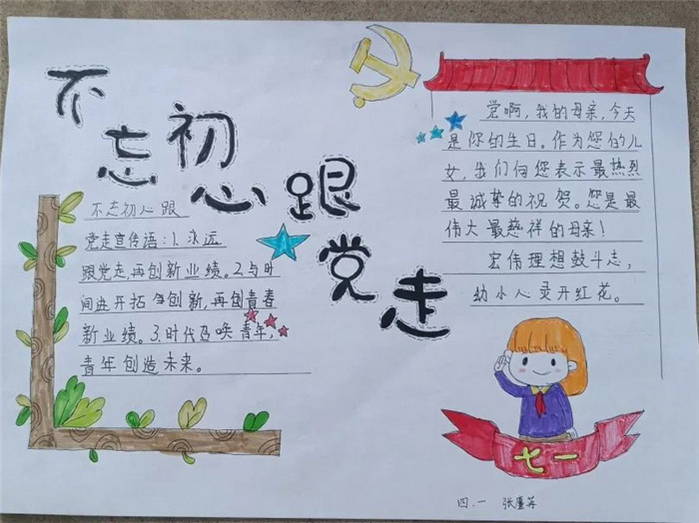 不忘初心跟党走
不忘初心跟
党走宣传语:1.永远
跟党走,再创新业绩。2.与时
间进开拓与创新,再创青春
新业绩。3.时代召唤青年,
青年创造未来。
党啊,我的母亲,今天
是你的生日。作为您的儿
女,我们向您表示最热烈
最诚挚的祝贺。您是最
伟大最慈祥的母亲!
宏伟理想鼓斗志,
幼小心灵开红花。
七一
四.一 张